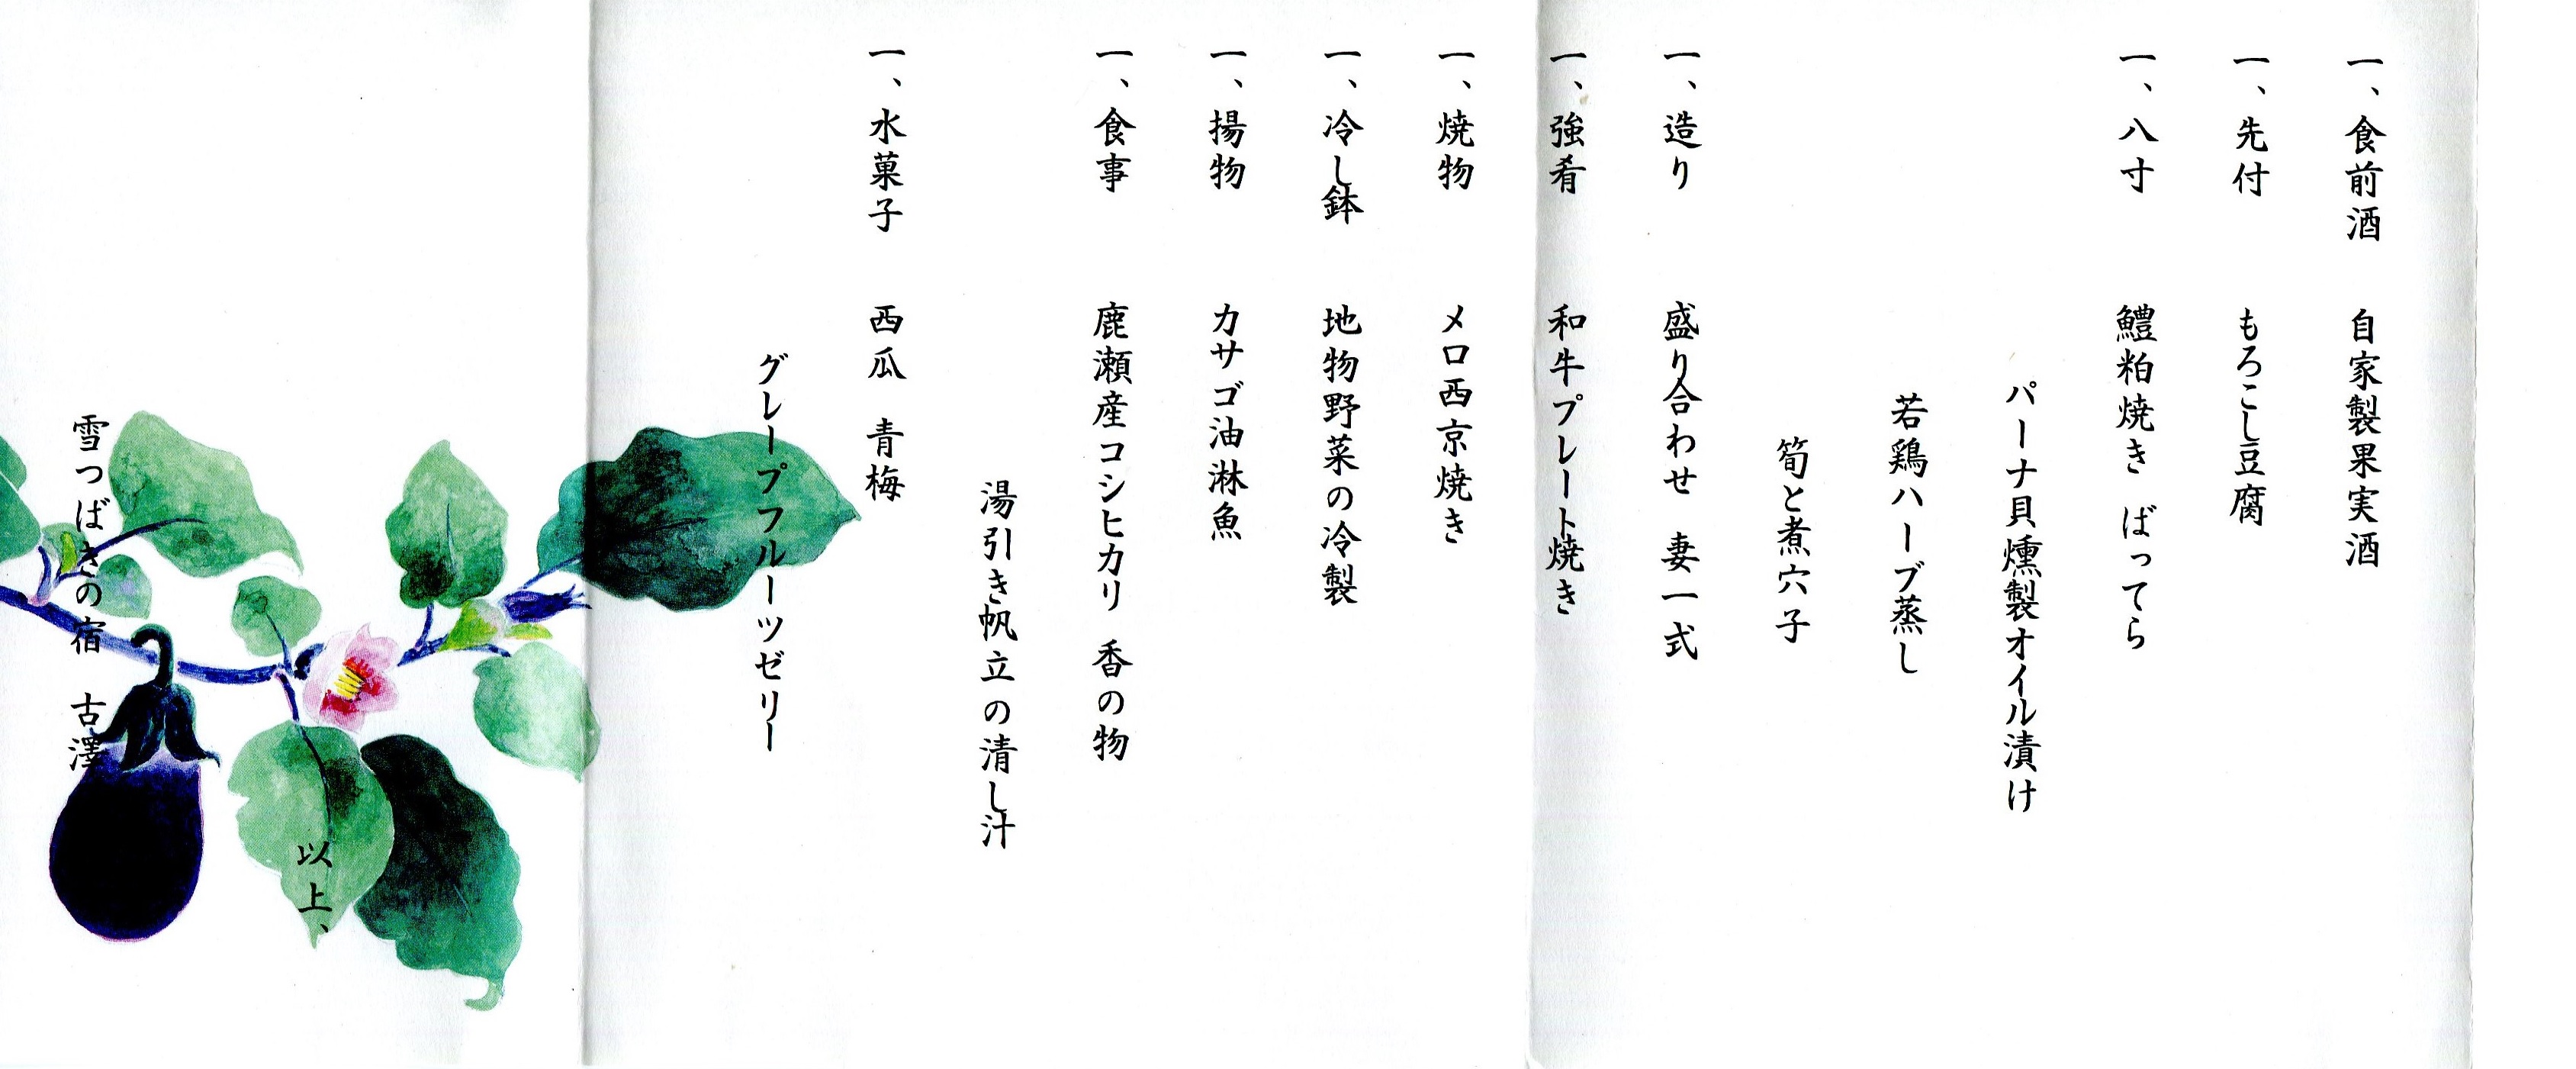 一、食前酒　自家製果実酒
一、先付　もろこし豆腐
一、八寸　鱧粕焼き　ばってら
パーナ貝燻製オイル漬け
若鶏ハーブ蒸し
筍と煮穴子
一、造り　盛り合わせ　妻一式
一、強肴　和牛プレート焼き
一、焼物　メロ西京焼き
一、冷し鉢　地物野菜の冷製
一、揚物　カサゴ油淋魚
一、食事　鹿瀬産コシヒカリ　香の物
湯引き帆立の清し汁
一、水菓子　西瓜　青梅
グレープフルーツゼリー
以上、
雪つばきの宿　古澤